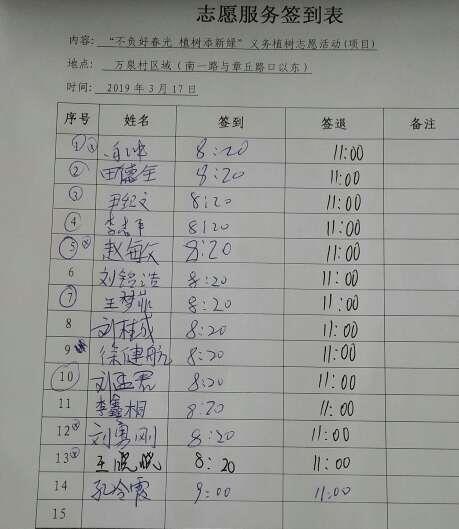 志愿服务签到表
内容: “不负好春光 植树添新绿”义务植树志愿活动(项目)
地点: 万泉村区域（南一路与章丘路口以东）
时间: 2019年3月17日
序号 姓名 签到 签退 备注
① 8:20 11:00
② 田德全 8:20 11:00
③ 尹纪文 8:20 11:00
④ 李志平 8:20 11:00
⑤ 赵海 8:20 11:00
6 刘铭浩 8:20 11:00
⑦ 王梦菲 8:20 11:00
8 刘桂成 8:20 11:00
9 徐健航 8:20 11:00
10 刘孟君 8:20 11:00
11 李鑫桐 8:20 11:00
12 刘勇刚 8:20 11:00
13 王晓晓 8:20 11:00
14 孔令霞 9:00 11:00
15